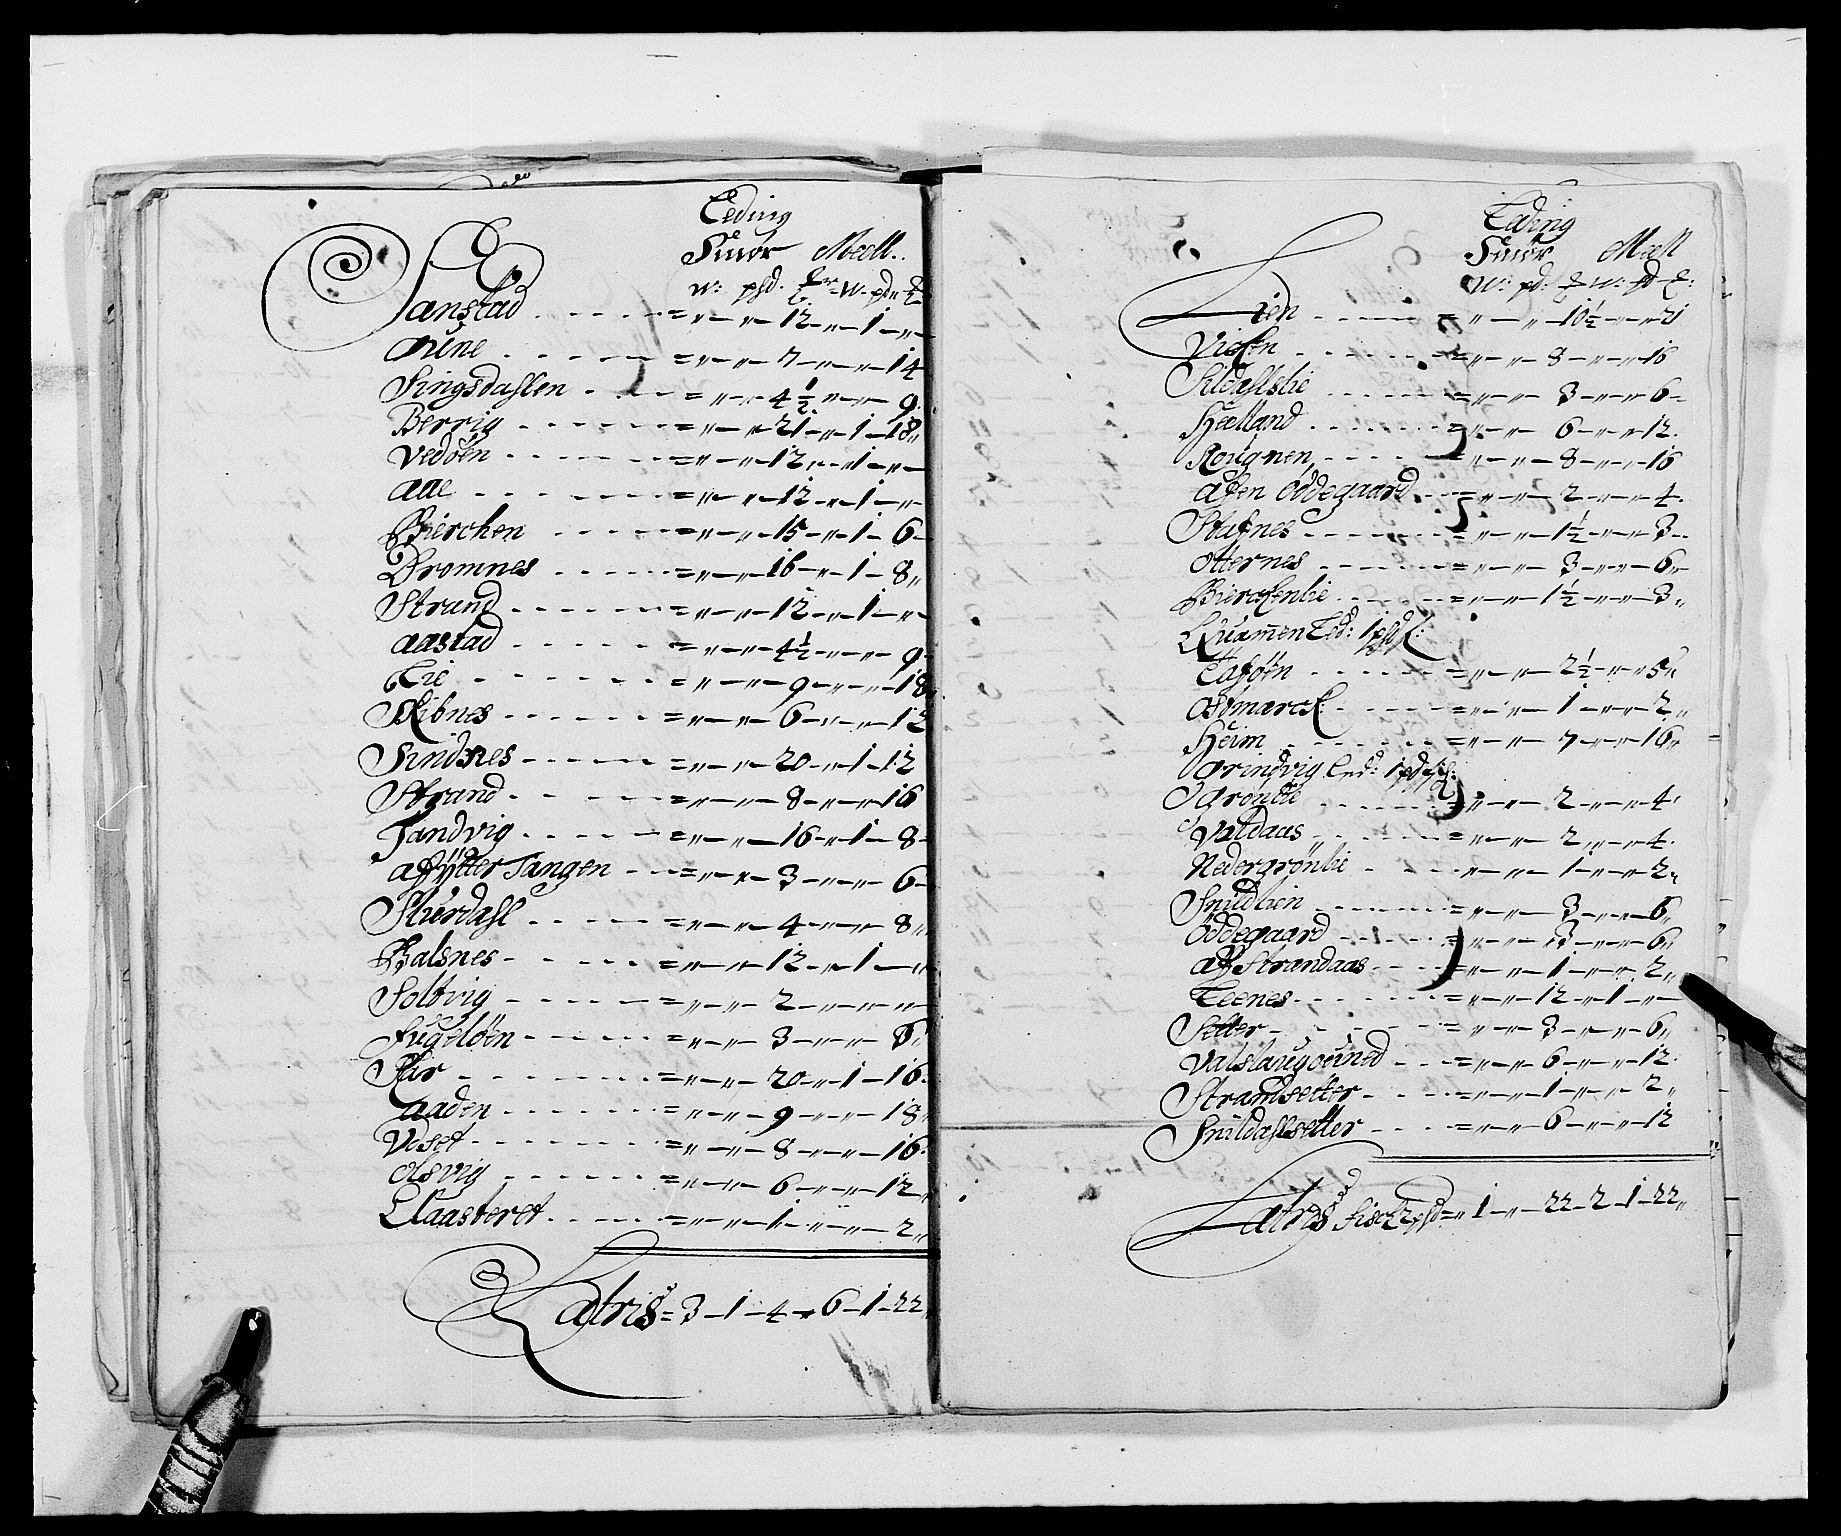 Leding
Smör Meell..
W: psd. ℔ W- pd: ℔
Sanstad . - - - - - - = „ — „ — 12 - „ - 1 - „ —
Aune . - - - - - = „ — „ — 7 - „ - „ - 14
Singsdahlen . - - - = „ — „ - 4½ - „ - „ - 9.
Berrig - - - - - - = „ — „ — 21 - „ - 1 - 18 „
Vedöen - - - - - = „ — „ — 12 - „ - 1 - „ —
Aae - - - - - - = „ — „ — 12 - „ - 1 - „
Bierchen - - - - - = „ — „ — 15 - „ - 1 - 6 -
Dromnes - - - - - = „ — „ — 16 - „ - 1 - 8 „
Strand - - - - - = „ — „ — 12 - „ - 1 - „ -
Aastad - - - - - = „ — „ — 4½ - „ - „ - 9 -
Lie - - - - - - = „ — „ — 9 - „ - „ - 18 „
Skibnes - - - - - = „ — „ — 6 - „ - „ - 12
Sindnes - - - - - = „ — „ — 20 - „ - 1 - 12
Strand - - - - - = „ — „ — 8 - „ - „ - 16
Tandvig - - - - - = „ — „ — 16 - „ - 1 - 8 -
Aff ytter Tangen - - = „ — „ — 3 - „ - „ - 6 -
Sturdahl - - - - - = „ — „ — 4 - „ - „ - 8 „
Balsnes - - - - - = „ — „ — 12 - „ - 1 - „
Soltvig - - - - - = „ — „ — 2 - „ - „ - „
Fugelöen - - - - - = „ — „ — 3 - „ - „ - 6 „
Kir - - - - - - = „ — „ — 20 - „ - 1 - 16 -
Aaden - - - - - = „ — „ — 9 - „ - „ - 18 „
Veset - - - - - - = „ — „ — 8 - „ - „ - 16 -
Olsvig - - - - - = „ — „ — 6 - „ - „ - 12 „
Claasteret - - - - = „ — „ — 1 - „ - „ - 2 „
Latris = 3 - 1 - 4 - 6 - 1 - 22 „
Leding
Smör Meell
W: pd: ℔ W: pd ℔:
Lien - - - - - - = „ — „ — 10½ - „ - „ - 21
Viken - - - - - = „ — „ — 8 - „ - „ - 16
Sildahlslie - - - - = „ — „ — 3 - „ - „ - 6 -
Hielland - - - - - = „ — „ — 6 - „ - „ - 12.
Rougnen - - - - - = „ — „ — 8 - „ - „ - 16
Aften Ödegaard - - = „ — „ — 2 - „ - „ - 4.
Stafnes - - - - - = „ — „ — 1½ - „ - „ - 3 -
Otternes - - - - - = „ — „ — 3 - „ - „ - 6 -
Bierckenlie - - - - = „ — „ — 1½ - „ - „ - 3 „
Quamen Led: 1 psd
Taföen - - - - - = „ — „ — 2½ - „ - „ - 5 „
Asmarck - - - - = „ — „ — 1 - „ - „ - 2 „
Heim - - - - - = „ — „ — 7 - „ - „ - 16 „
Grindvig Led: 1 pd
Grønlie - - - - = „ — „ — 2 - „ - „ - 4 „
Valdaas - - - - = „ — „ — 2 - „ - „ - 4.
Nedergrönlie - - - = „ — „ — 1 - „ - „ - 2 „
Snildlien - - - - = „ — „ — 3 - „ - „ - 6 „
Ödegaard - - - - = „ — „ — 3 - „ - „ - 6 „
Aff Strandaas - - - = „ — „ — 1 - „ - „ - 2 „
Leenes - - - - - = „ — „ — 12 - „ - 1 - „ -
Setter - - - - - = „ — „ — 3 - „ - „ - 6 „
Valslaugound - - - = „ — „ — 6 - „ - „ - 12.
Strandsetter - - - = „ — „ — 1 - „ - „ - 2 „
Snildahlsetter - - - = „ — „ — 6 - „ - „ - 12
Latris fisch 2 psd = „ 1 - „ - 22 - 2 - 1 - 22 „